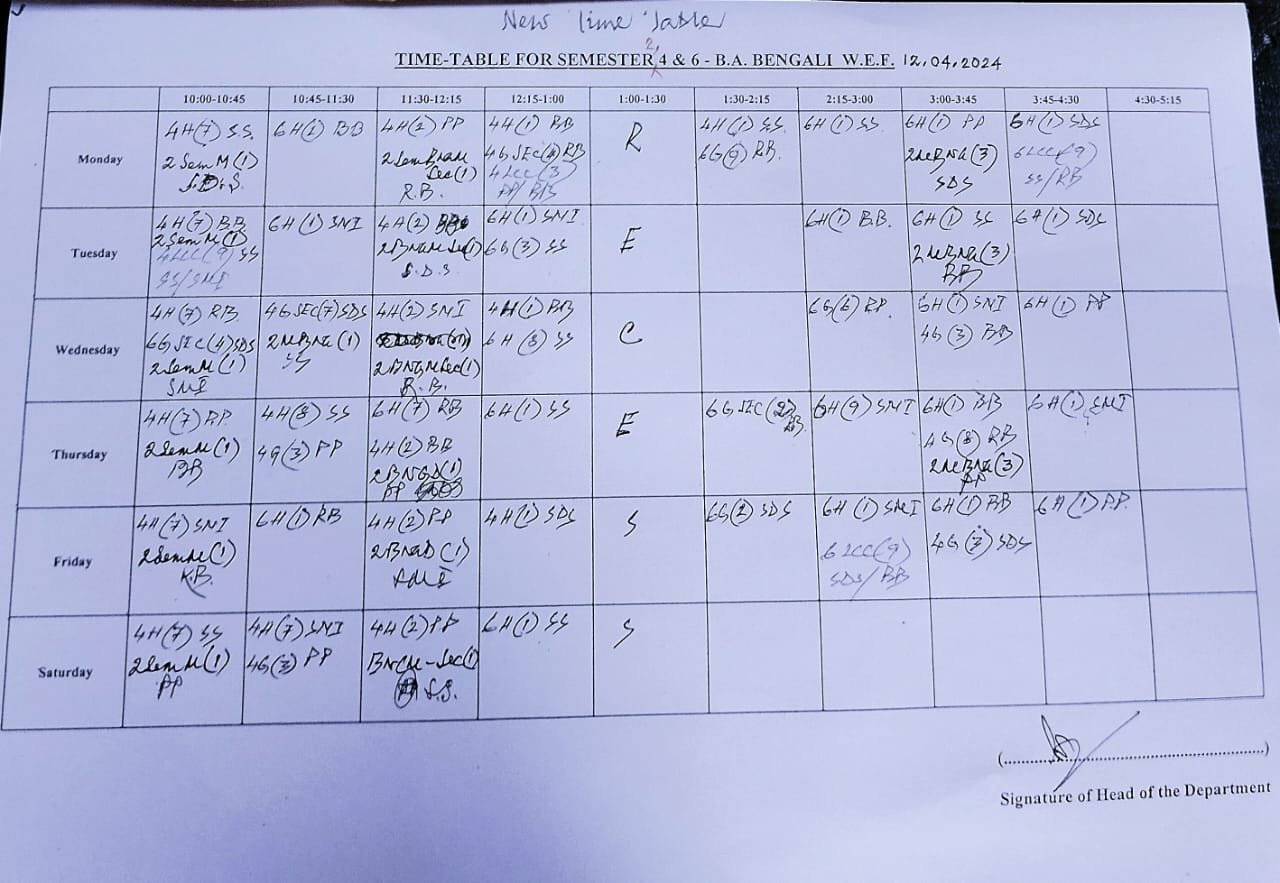 New Time Table
TIME-TABLE FOR SEMESTER 2, 4 & 6 - B.A. BENGALI W.E.F. 12.04.2024
10:00-10:45 10:45-11:30 11:30-12:15 12:15-1:00 1:00-1:30 1:30-2:15 2:15-3:00 3:00-3:45 3:45-4:30 4:30-5:15
Monday
4H(7) S.S.
2 Sem M(1)
S.D.S.
6H(1) BB
4H(2) PP
Sec(1)
R.B.
4H(1) BB
4G SEC(4) RB
4LCC(3)
PP/BB
R
4H(1) SS
6G(9) RB
6H(1) SS
6H(1) PP
SDS
6H(1) SDS
6LCC(9)
SS/RB
Tuesday
4H(7) BB
2 Sem M(1)
4LCC(9) SS
SS/SMI
6H(1) SMI
4H(2)
S.D.S
6H(1) SMI
6G(3) SS
E
6H(1) B.B.
6H(1) SS
BB
6H(1) SDS
Wednesday
4H(7) RB
6G SEC(4) SDS
2 Sem M(1)
SMI
4G SEC(7) SDS
SS
4H(2) SMI
2 BNGM Sec(1)
R.B.
4H(1) BB
6H(8) SS
C
6G(6) RP.
6H(1) SMI
4G(3) BB
6H(1) PP
Thursday
4H(7) RP.
2 Sem M(1)
BB
4H(8) SS
4G(3) PP
6H(7) RB
4H(2) BB
PP
6H(1) SS
E
6G SEC(2)
RB.
6H(9) SMI
6H(1) BB
4G(8) RB
PP
6H(1) SMI
Friday
4H(7) SMI
2 Sem M(1)
R.B.
6H(1) RB
4H(2) PP
SMI
4H(1) SDS
S
6G(2) SDS
6H(1) SMI
6LCC(9)
SDS/BB
6H(1) BB
4G(3) SDS
6H(1) PP.
Saturday
4H(7) SS
2 Sem M(1)
PP
4H(7) SMI
4G(3) PP
4H(2) PP
S.S.
6H(1) SS
S
(..............................................)
Signature of Head of the Department